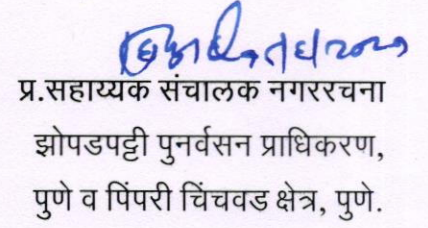 प्र.सहाय्यक संचालक नगररचना
झोपडपट्टी पुनर्वसन प्राधिकरण,
पुणे व पिंपरी चिंचवड क्षेत्र, पुणे.